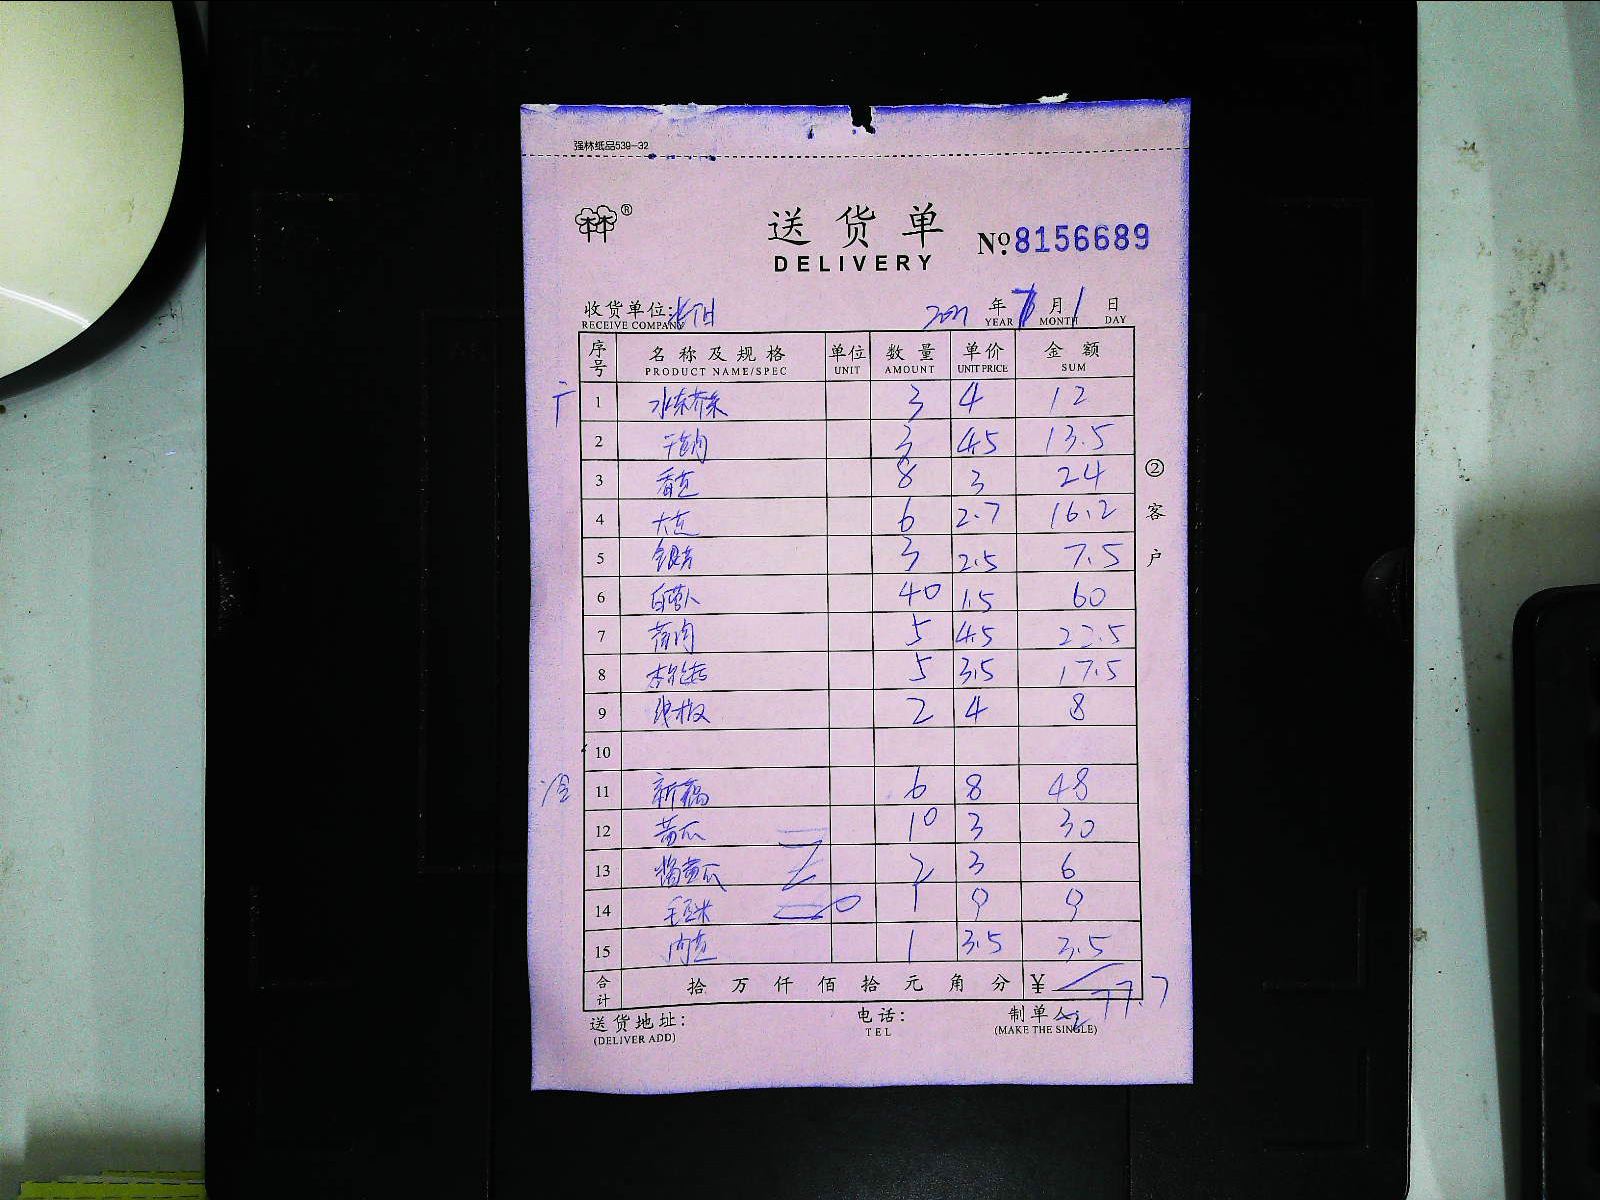 强林纸品539-32
®
送货单
DELIVERY
Nº 8156689
收货单位:
RECEIVE COMPANY
2021 年 7 月 1 日
YEAR MONTH DAY
序号 名称及规格 单位 数量 单价 金额
PRODUCT NAME/SPEC UNIT AMOUNT UNIT PRICE SUM
1 水东芥菜 3 4 12
2 3 4.5 13.5
3 香芒 8 3 24
4 大芒 6 2.7 16.2
5 3 2.5 7.5
6 白萝卜 40 1.5 60
7 5 4.5 22.5
8 5 3.5 17.5
9 线椒 2 4 8
10
冷 11 6 8 48
12 黄瓜 10 3 30
13 酱黄瓜 2 3 6
14 毛豆米 1 9 9
15 内芒 1 3.5 3.5
合计 拾 万 仟 佰 拾 元 角 分 ¥ 277.7
② 客户
送货地址:
(DELIVER ADD)
电话:
TEL
制单人:
(MAKE THE SINGLE)